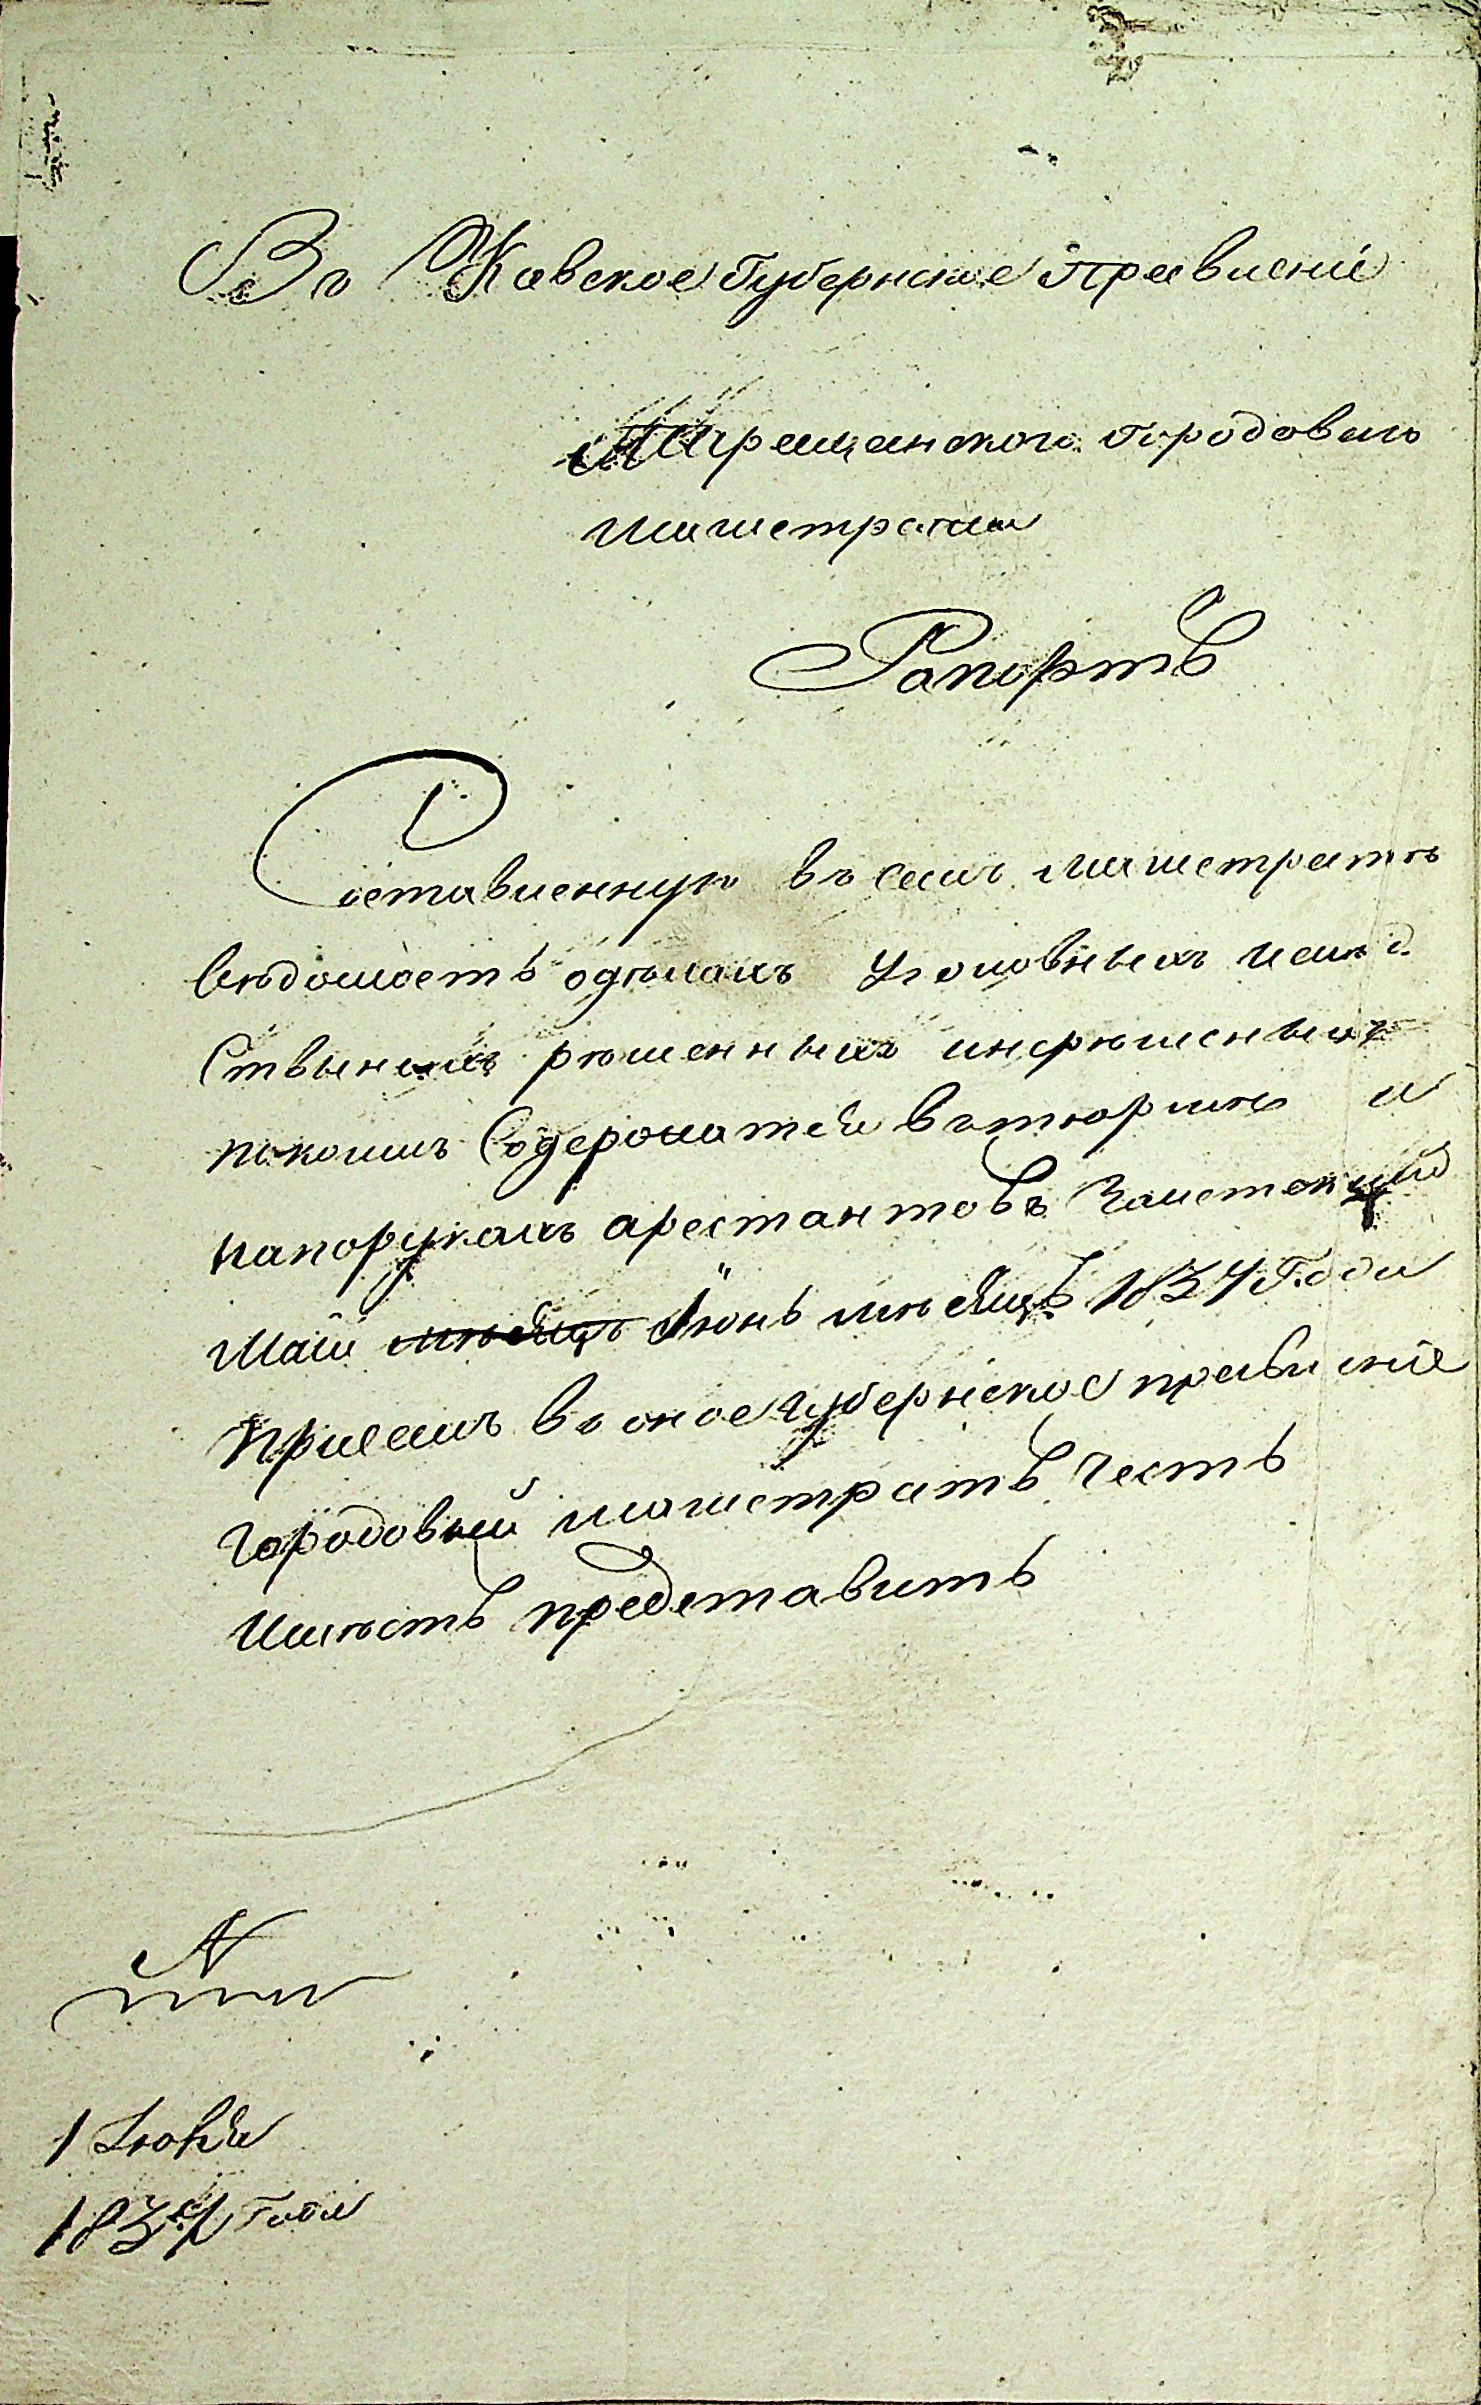 Въ Кіевское Губернское Правленіе
Таращанскаго Городоваго
Магистрата
Рапортъ
Составленную въ семъ магистратѣ
вѣдомость одѣлахъ уголовныхъ ислѣд
Ствыныхъ рѣшенныхъ инерѣшеныхъ
покоимъ Содержатся вътюрмѣ и
напорукахъ арестантовъ Заистекцій
Май мѣсяцъ Іюнь мѣсяцъ 1834 Года
присемъ въ оное губернское правленіе
городовый магистратъ Честь
имѣетъ представитъ
№
1 Іюня
1834 Года